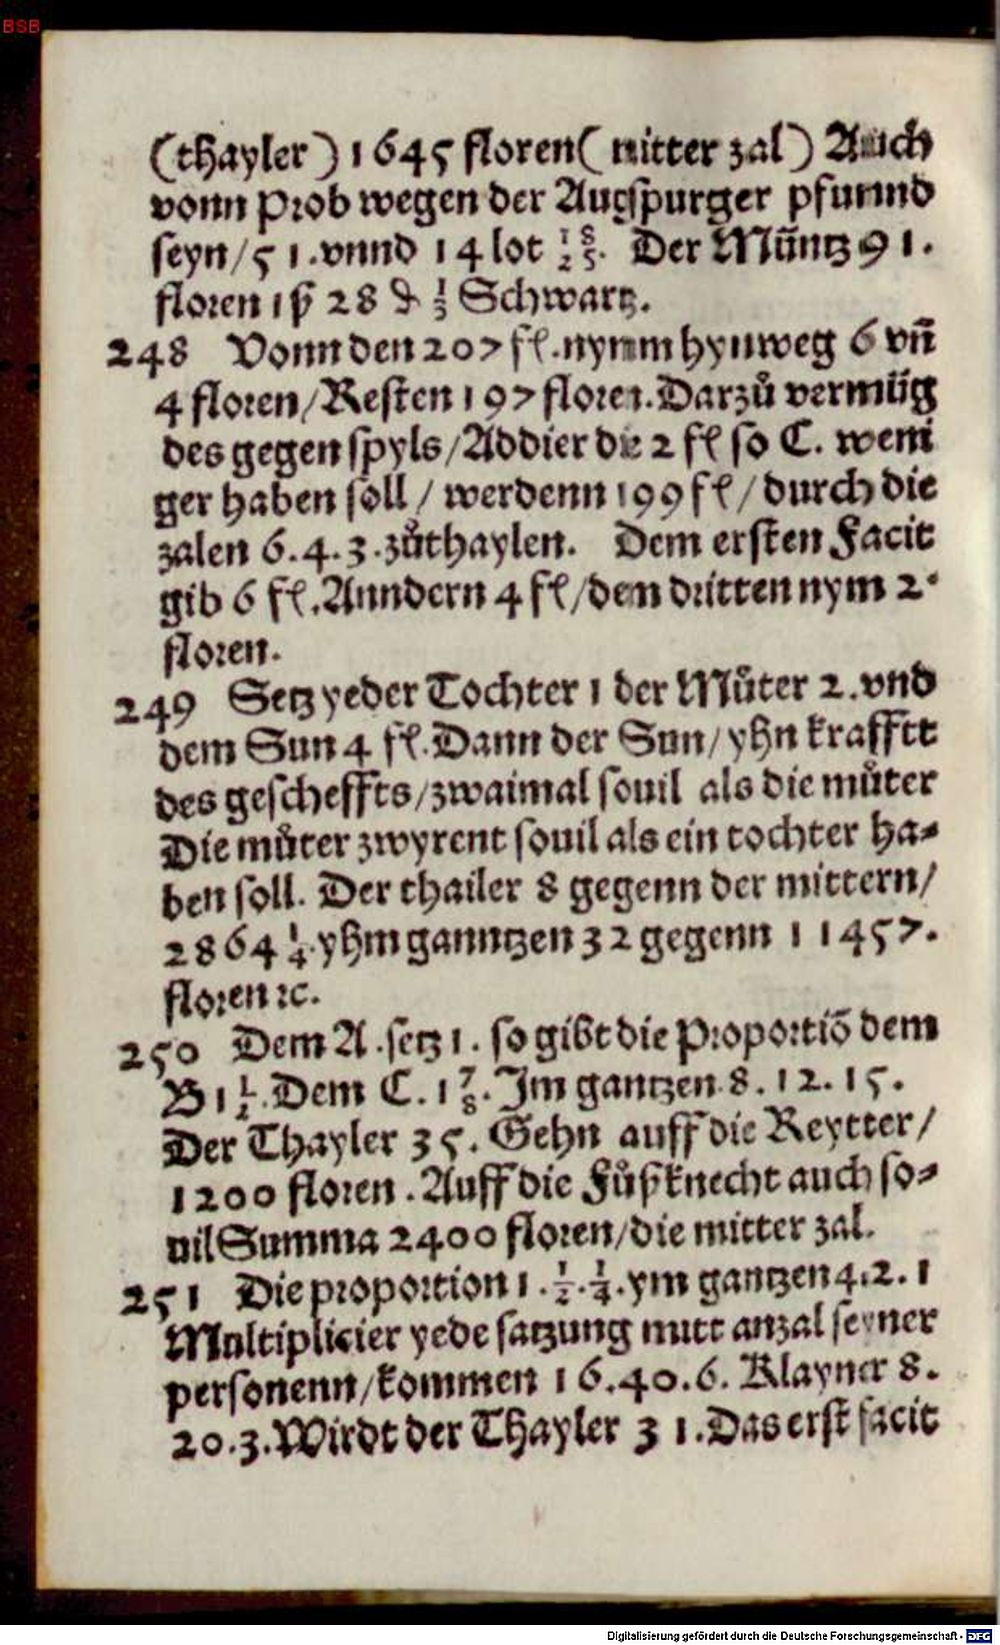 BSB
(thayler) 1645 floren (mitter zal) Auch
vonn Prob wegen der Augspurger pfunnd
seyn/51. vnnd 14 lot 18/25. Der Mün̄tz 91.
floren 1 ß 28 ₰ 1/3 Schwartz.
248 Vonn den 207 fl. nymm hynweg 6 vn̄
4 floren/Resten 197 floren. Darzů vermüg
des gegen spyls/Addier die 2 fl so C. weni
ger haben soll/ werdenn 199 fl/durch die
zalen 6.4.3. zůthaylen. Dem ersten Facit
gib 6 fl. Anndern 4 fl/den dritten nym 2.
floren.
249 Setz yeder Tochter 1 der Můter 2. vnd
dem Sun 4 fl. Dann der Sun/yhn krafftt
des gescheffts/zwaimal souil als die můter
Die můter zwyrent souil als ein tochter ha-
ben soll. Der thailer 8 gegenn der mittern/
2864 1/4. yhm ganntzen 32 gegenn 11457.
floren ꝛc.
250 Dem A. setz 1. so gibt die Proportiō dem
B 1 1/2. Dem C. 1 7/8. Im gantzen 8. 12. 15.
Der Thayler 35. Gehn auff die Reytter/
1200 floren. Auff die Fůßknecht auch so-
uil Summa 2400 floren/die mitter zal.
251 Die proportion 1. 1/2. 1/4. ym gantzen 4.2.1
Multiplicier yede satzung mitt anzal seyner
personenn/kommen 16.40.6. Klayner 8.
20.3. Wirdt der Thayler 31. Das erst facit
Digitalisierung gefördert durch die Deutsche Forschungsgemeinschaft - DFG